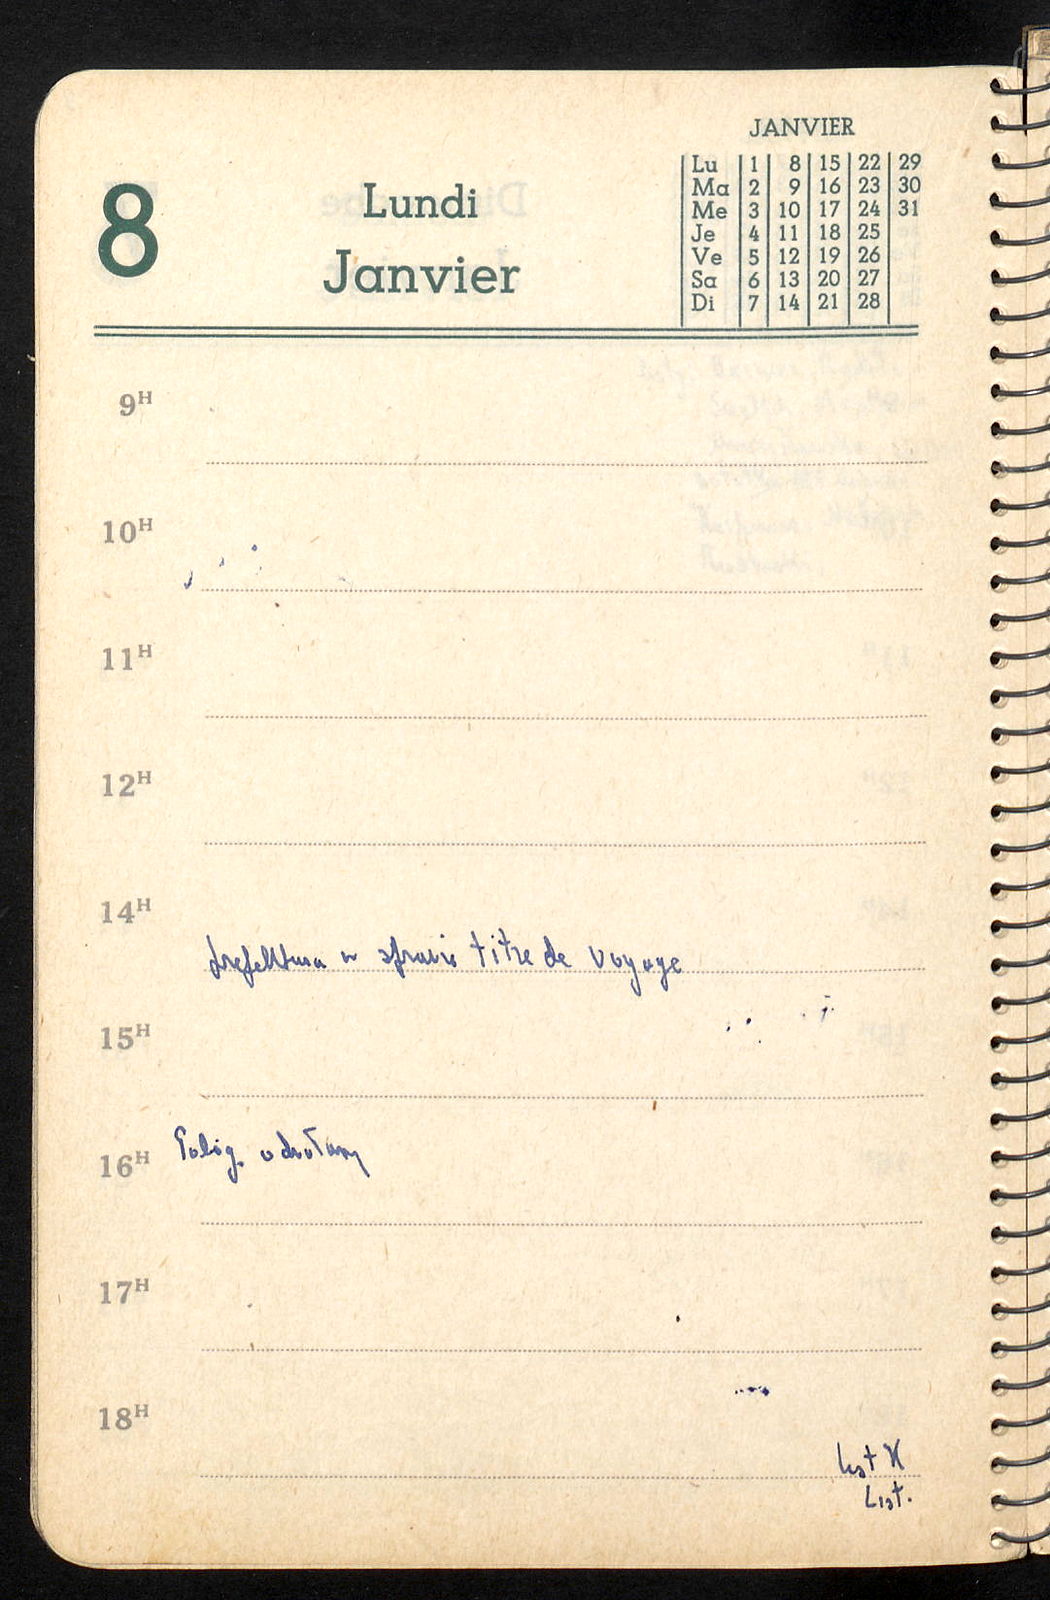 JANVIER
8
Lundi
Janvier
Lu 1 8 15 22 29
Ma 2 9 16 23 30
Me 3 10 17 24 31
Je 4 11 18 25
Ve 5 12 19 26
Sa 6 13 20 27
Di 7 14 21 28
9H
10H
11H
12H
14H
prefektura w sprawie titre de voyage
15H
16H odwołany
17H
18H
List
List.